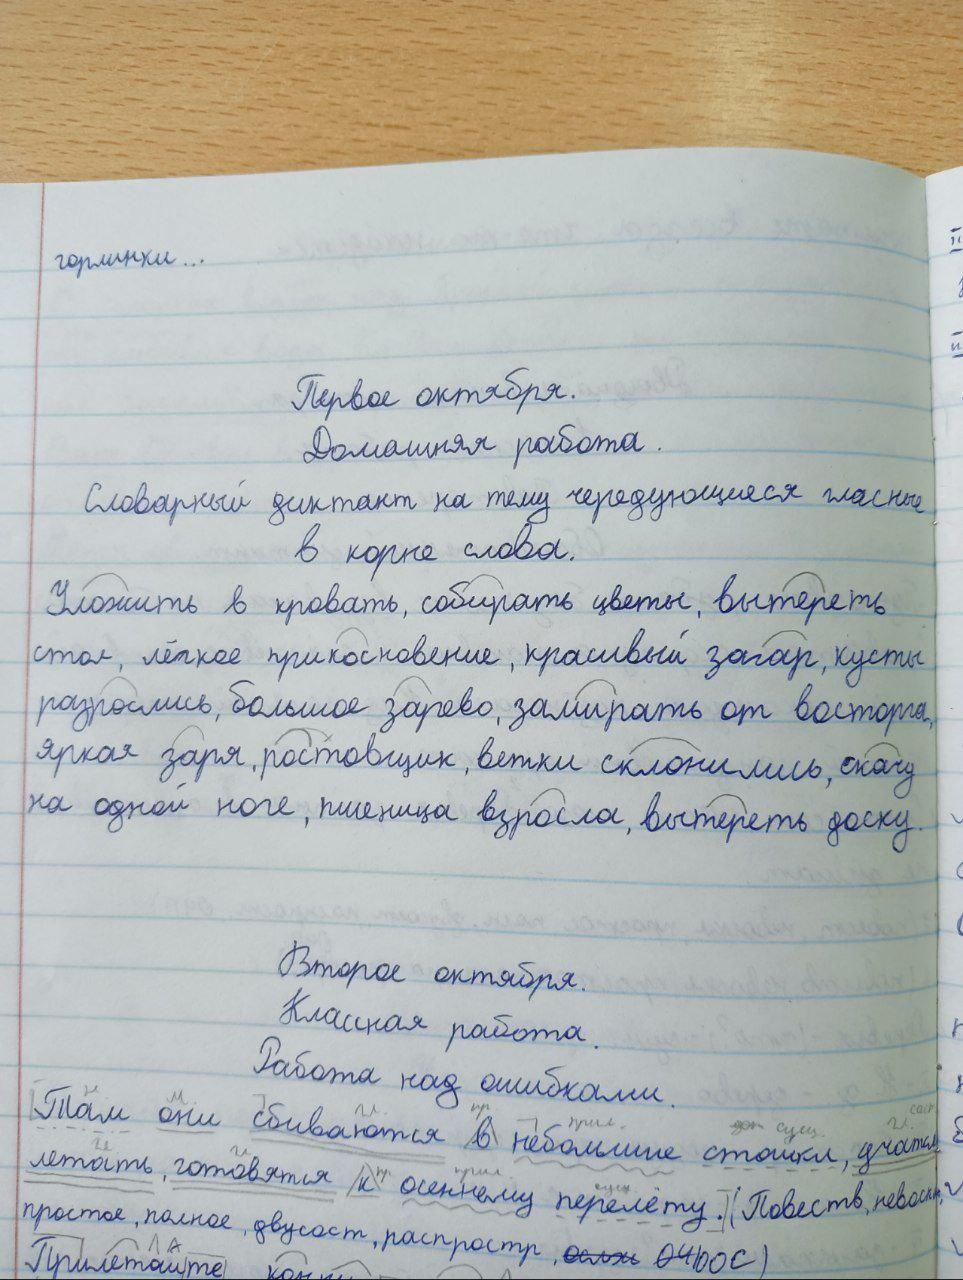 горлинки...
Первое октября.
Домашняя работа.
Словарный диктант на тему чередующиеся гласные
в корне слова.
Уложить в кровать, собирать цветы, вытереть
стол, лёгкое прикосновение, красивый загар, кусты
разрослись, большое зарево, замирать от восторга,
яркая заря, ростовщик, ветки склонились, скачу
на одной ноге, пшеница взросла, вытереть доску.
Второе октября.
Классная работа.
Работа над ошибками.
н м. гл. пр прил. сущ. гл.
Там они сбиваются в небольшие стайки, учатся
гл гл пр прил сущ.
летать, готовятся к осеннему перелёту. (Повеств, невоскл,
простое, полное, двусост, распростр,
Прилетайте